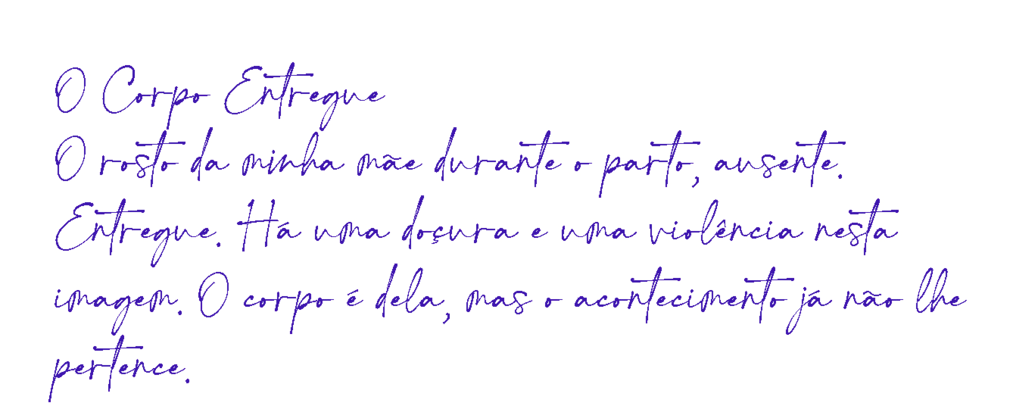 O Corpo Entregue
O rosto da minha mãe durante o parto, ausente.
Entregue. Há uma doçura e uma violência nesta
imagem. O corpo é dela, mas o acontecimento já não lhe
pertence.